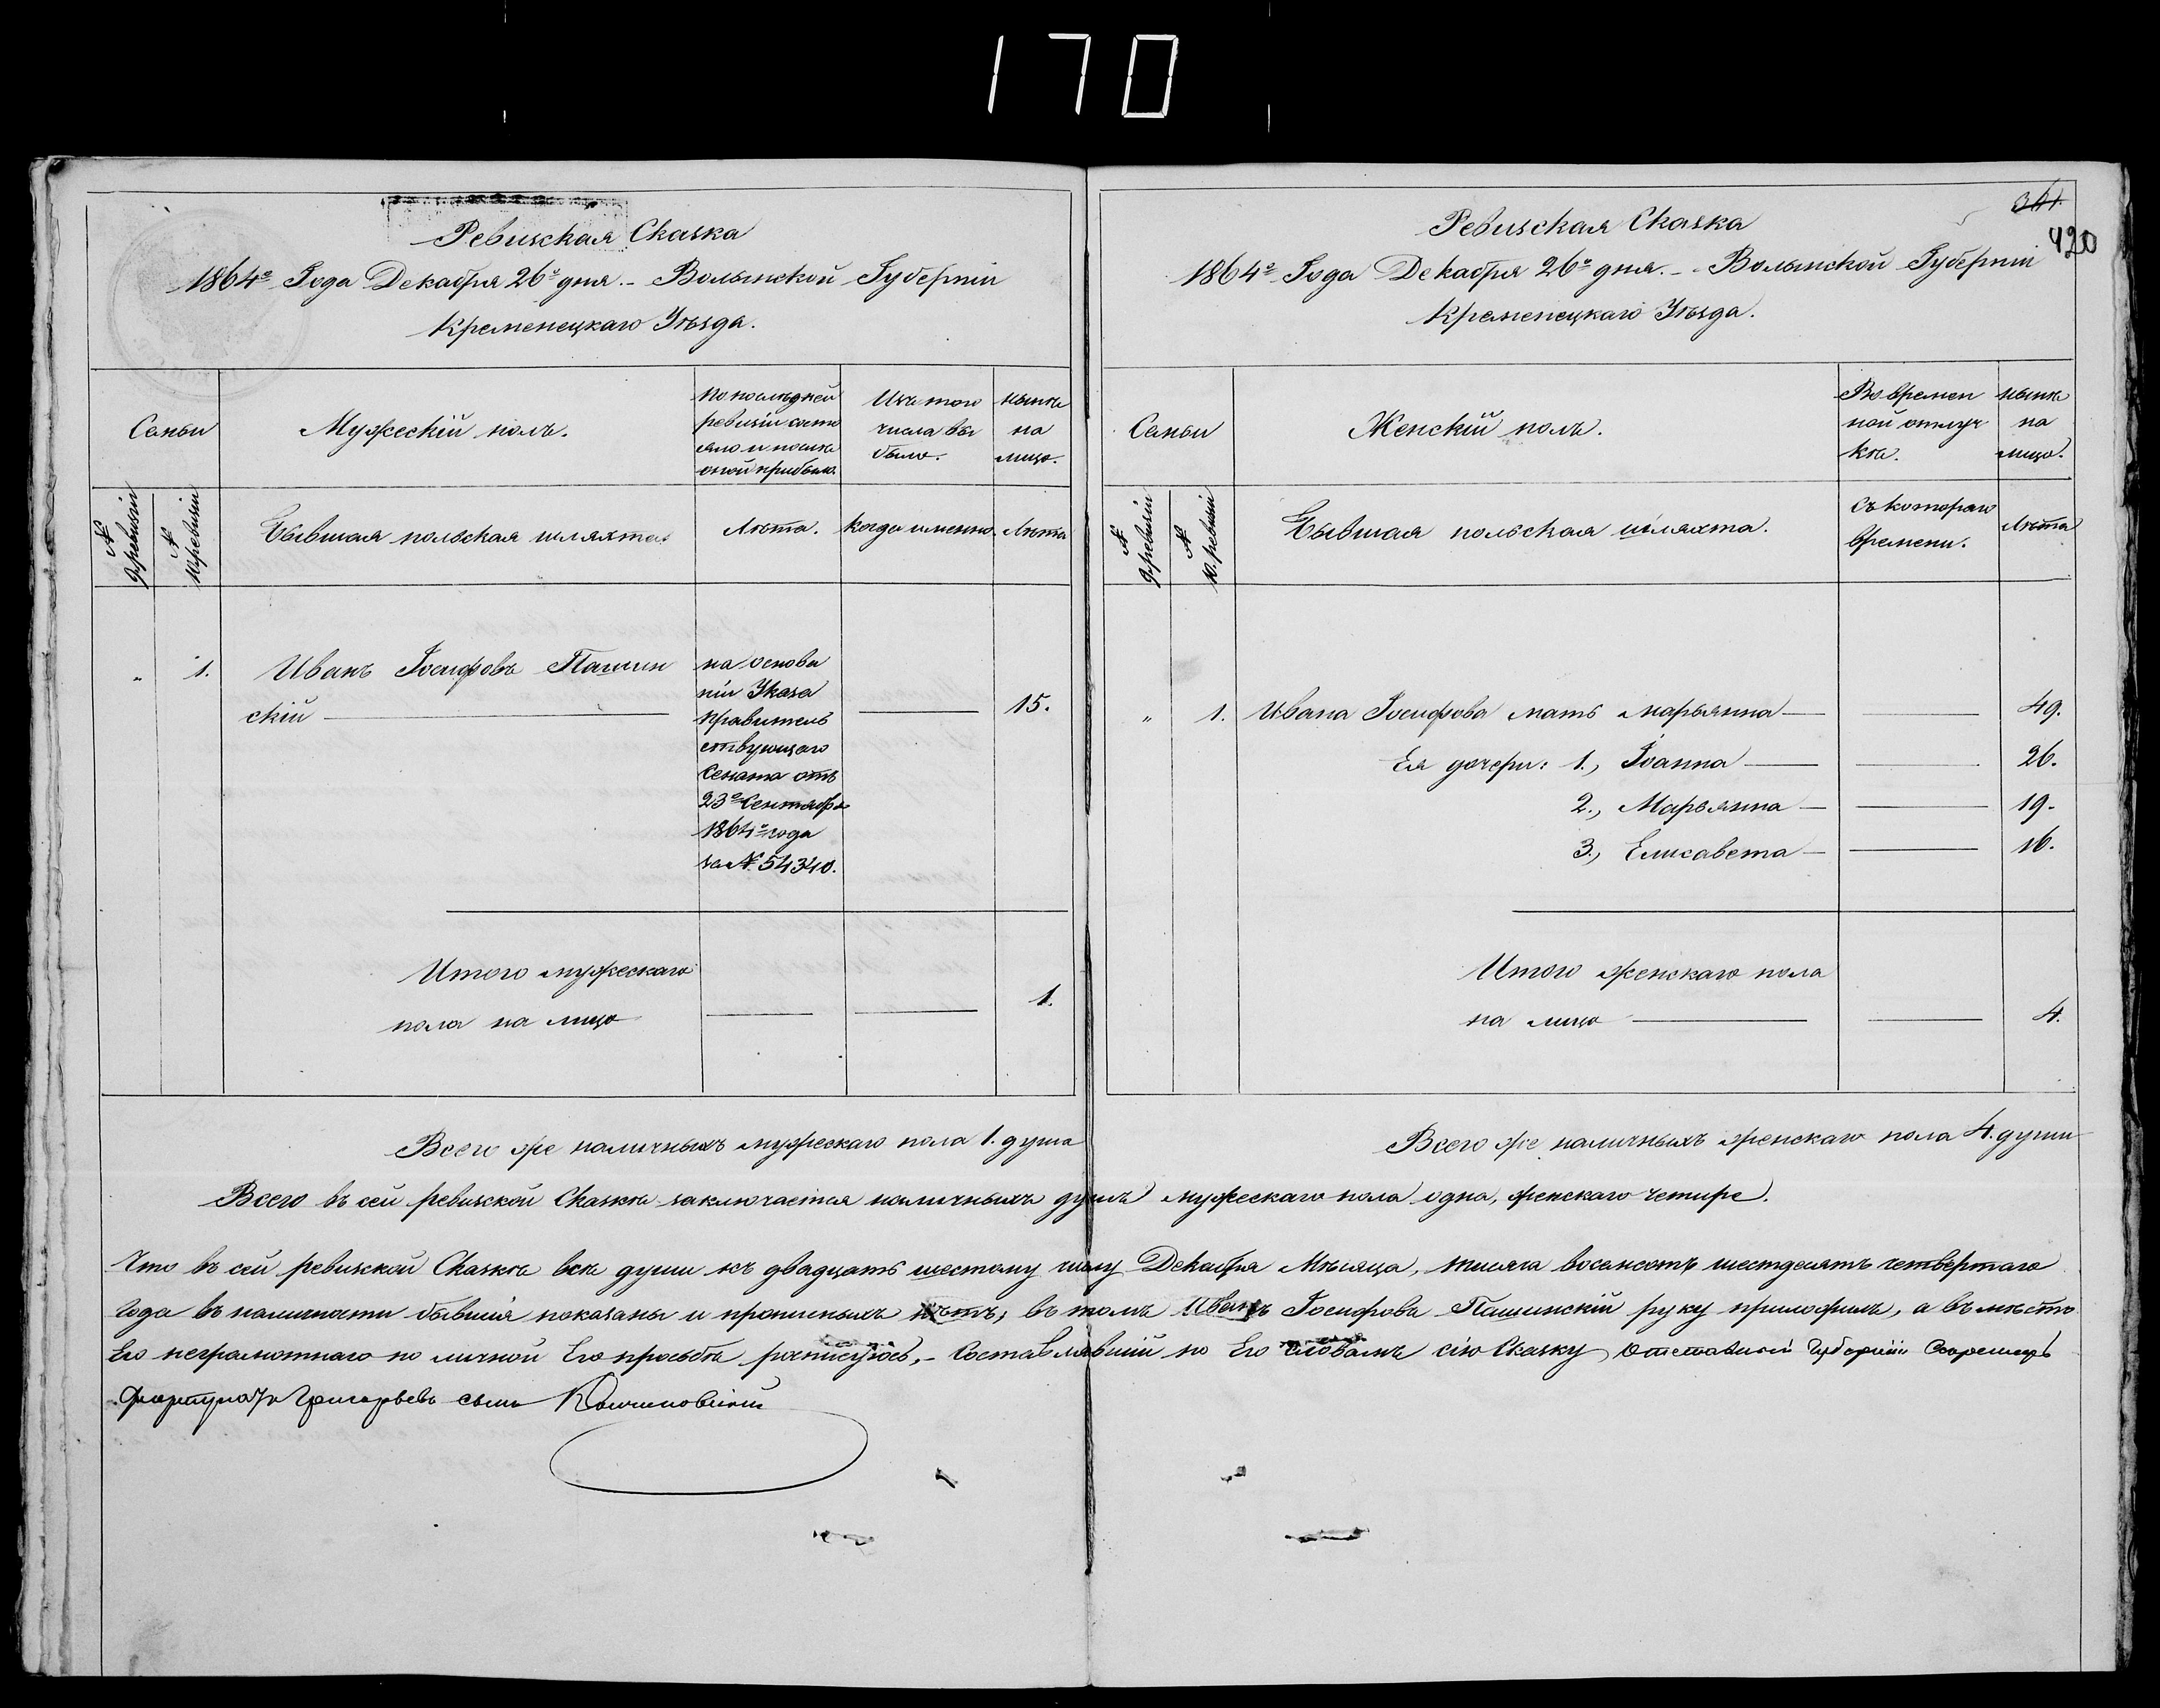 170
Ревизская Сказка
1864го Года Декабря 26го дня. - Волынской Губерніи
Кременецкаго Уѣзда.
Семьи
Мужескій полъ.
По послѣдней
ревизіи состо
яло и послѣ
оной прибыло.
Изъ того
числа вы
было.
нынѣ
на
лицо.
№ 9 ревизіи
№ 10 ревизіи
Бывшая польская шляхта
Лѣта.
когда именно.
Лѣта
„ 1. Иванъ Іосифовъ Пашин
скій
на основа
ніи Указа
Правитель
ствующаго
Сената отъ
23го Сентября
1864го года
за № 54340.
15.
Итого мужескаго
пола на лицо
1.
Всего же наличныхъ мужескаго пола 1. душа
361
420
Ревизская Сказка
1864го Года Декабря 26го дня. - Волынской Губерніи
Кременецкаго Уѣзда.
Семьи
Женскій полъ.
Во времен
ной отлуч
кѣ.
нынѣ
на
лицо.
№ 9 ревизіи
№ 10. ревизіи
Бывшая польская шляхта.
Съ котораго
времени.
Лѣта
„ 1. Ивана Іосифова мать Марьянна 49.
Ея дочери: 1., Іоанна 26.
2., Марьянна 19.
3., Елисавета 16.
Итого женскаго пола
на лицо 4.
Всего же наличныхъ женскаго пола 4. души
Всего въ сей ревизской Сказкѣ заключается наличныхъ душъ мужескаго пола одна, женскаго четире.
Что въ сей ревизской Сказкѣ всѣ души къ двадцать шестому числу Декабря Мѣсяца, тисяча восемсотъ шестдесятъ четвертаго
Года въ наличности бывшія показаны и прописныхъ нѣтъ, въ томъ Иванъ Іосифовъ Пашинскій руку приложилъ, а въ мѣсто
Его неграмотнаго по личной Его просьбѣ росписуюсь, - Составлявшій по Его словамъ сію Сказку Отставной Губернскій
Григорьевъ сынъ